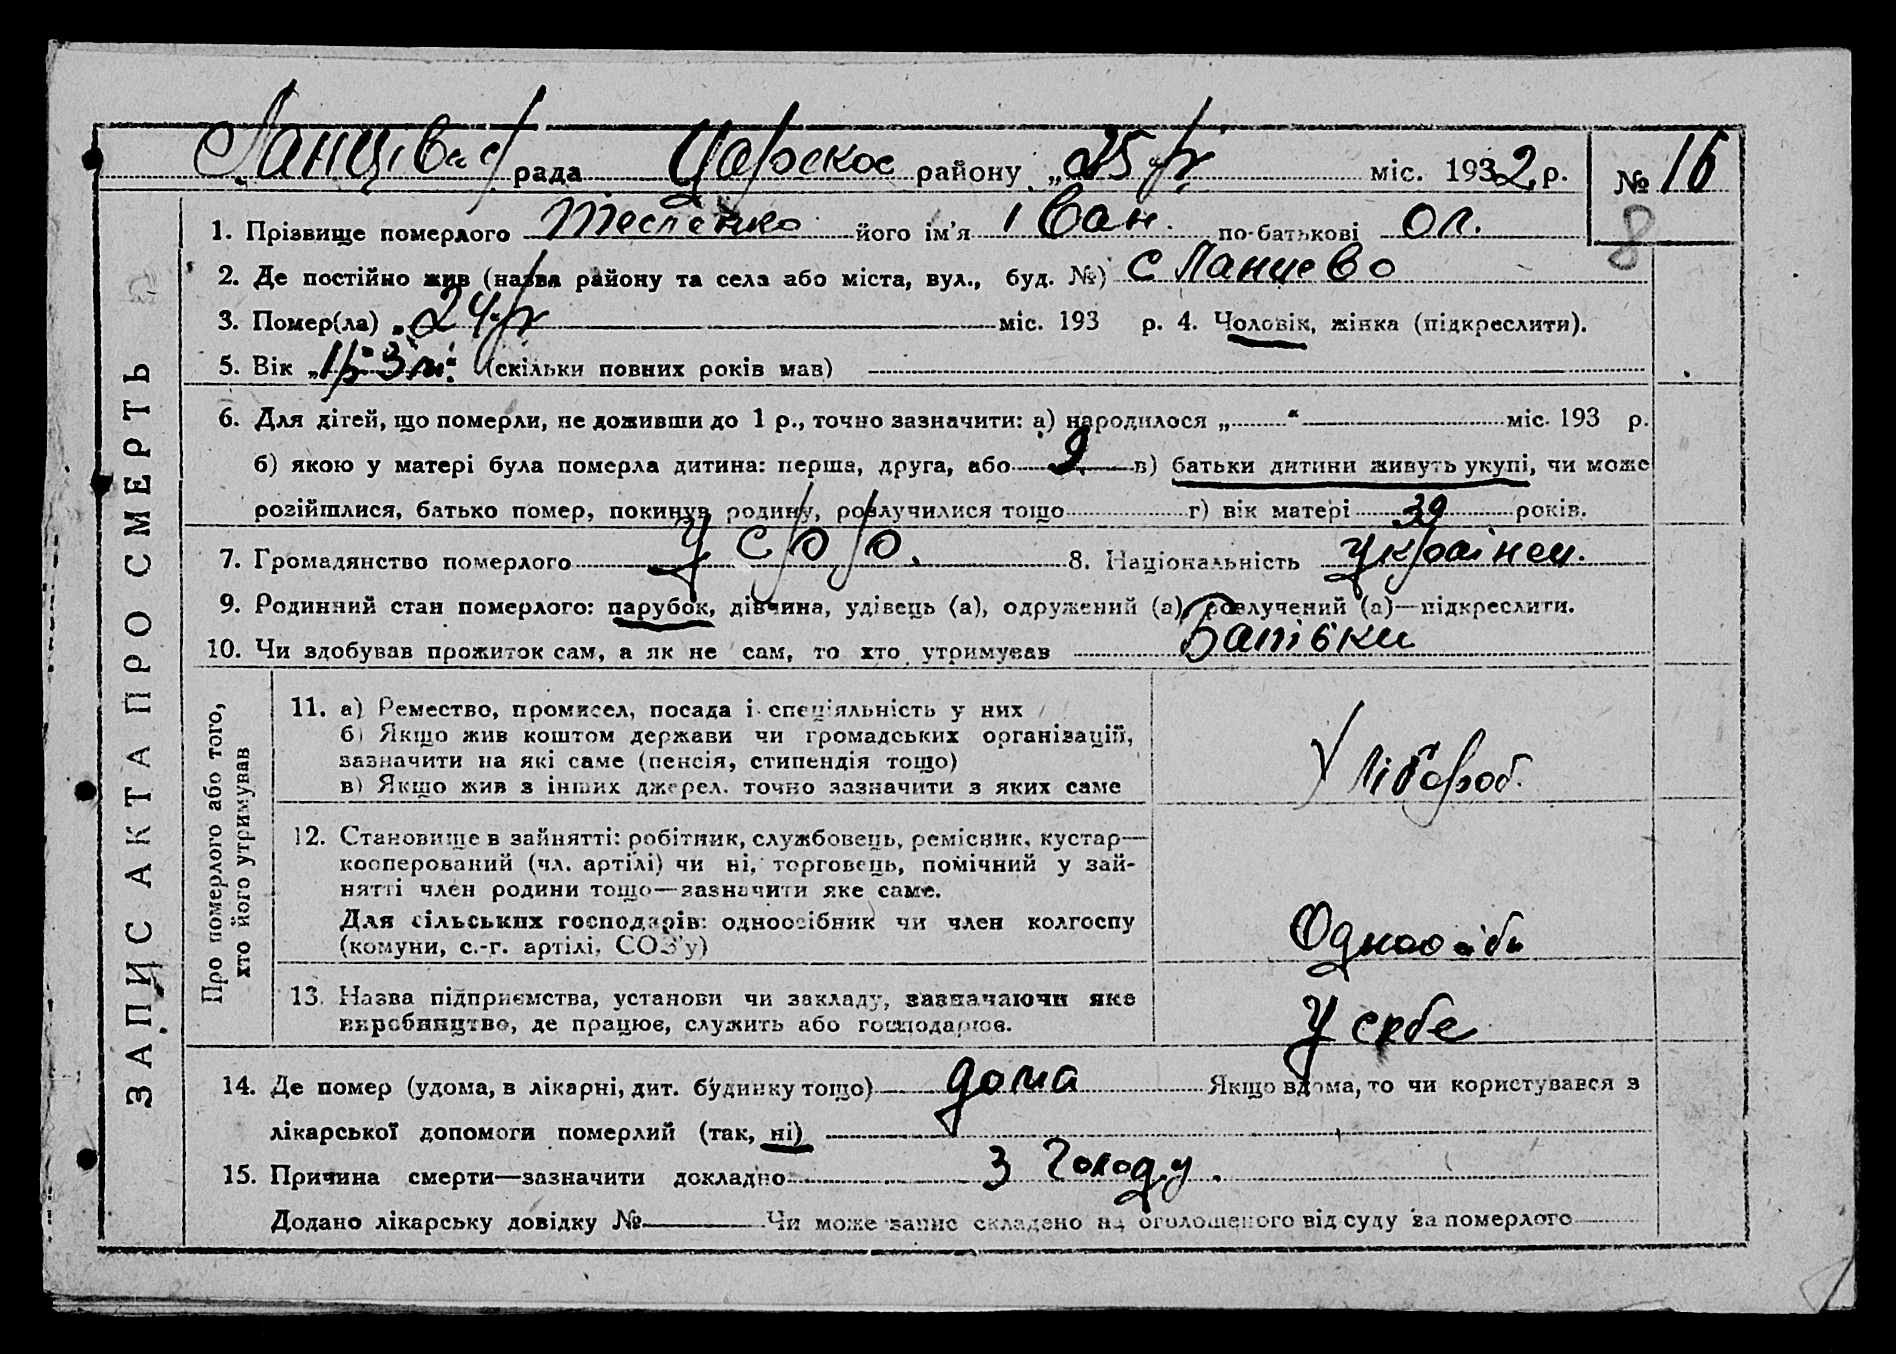 рада району „25 міс. 1932 р. № 16
8
1. Прізвище померлого його ім'я Іван. по-батькові Ол.
2. Де постійно жив (назва району та села або міста, вул., буд. №) с Ланцево
3. Помер(ла) „24 міс. 193 р. 4. Чоловік, жінка (підкреслити).
5. Вік „1р. 3 м. (скільки повних років мав)
6. Для дітей, що померли, не доживши до 1 р., точно зазначити: а) народилося „ “ міс. 193 р.
б) якою у матері була померла дитина: перша, друга, або 9 в) батьки дитини живуть укупі, чи може
розійшлися, батько помер, покинув родину, розлучилися тощо г) вік матері 39 років.
7. Громадянство померлого У С Р Р. 8. Національність українец.
9. Родинний стан померлого: парубок, дівчина, удівець (а), одружений (а), розлучений (а)—підкреслити.
10. Чи здобував прожиток сам, а як не сам, то хто утримував Батьки
ЗАПИС АКТА ПРО СМЕРТЬ
Про померлого або того,
хто його утримував
11. а) Ремество, промисел, посада і спеціяльність у них
б) Якщо жив коштом держави чи громадських організацій,
зазначити на які саме (пенсія, стипендія тощо)
в) Якщо жив з інших джерел. точно зазначити з яких саме
Хлібороб.
12. Становище в зайнятті: робітник, службовець, ремісник, кустар—
кооперований (чл. артілі) чи ні, торговець, помічний у зай-
нятті член родини тощо—зазначити яке саме.
Для сільських господарів: одноосібник чи член колгоспу
(комуни, с.-г. артілі, СОЗ'у)
13. Назва підприємства, установи чи закладу, зазначаючи яке
виробництво, де працює, служить або господарює.
У себе
14. Де помер (удома, в лікарні, дит. будинку тощо) дома Якщо вдома, то чи користувався з
лікарської допомоги померлий (так, ні)
15. Причина смерти—зазначити докладно З голоду.
Додано лікарську довідку № Чи може запис складено на оголошеного від суду за померлого